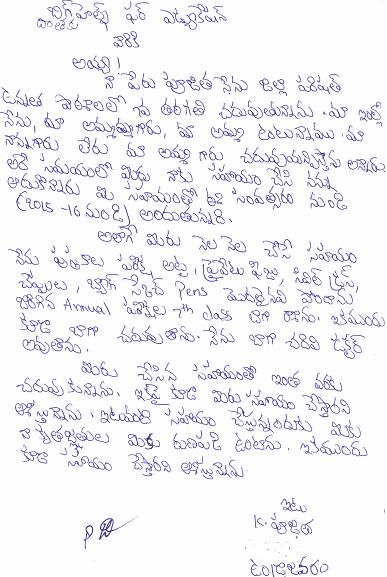 బిగ్ హెల్ప్ ఫర్ ఎడ్యుకేషన్
వారికి
అయ్యా!
నా పేరు పూజిత నేను జిల్లా పరిషత్
ఉన్నత పాఠశాలలో తరగతి చదువుతున్నాను. మా ఇంట్లో
నేను, మా అమ్మమ్మగారు, మా అమ్మ ఉంటున్నాము. మా
నాన్నగారు లేరు మా అమ్మ గారు
అదే సమయంలో మీరు నాకు సహాయం చేసి నన్ను
ఆదుకొన్నారు మీ సహాయంతో సంవత్సరం నుండి
(2015-16 నుండి) అందుతున్నది.
అలాగే మీరు నెల నెల చేసే సహాయం
నేను పుస్తకాలు పరీక్ష అట్ట, ప్రైవేటు ఫీజు,
చెప్పులు, బ్యాగ్ Pens మొదలైనవి పొందాను
జరిగిన Annual పరీక్షలు 7th class బాగా రాశాను. ఇకముందు
కూడా బాగా చదువుతాను. నేను బాగా చదివి డాక్టర్
అవుతాను.
మీరు చేసిన సహాయంతో ఇంత వరకు
చదువుకున్నాను. ఇకపై కూడా మీరు సహాయం చేస్తారని
ఆశిస్తున్నాను. ఇటువంటి సహాయం చేస్తున్నందుకు మీకు
నా కృతజ్ఞతలు మీకు రుణపడి ఉంటాను. ఇకముందు
కూడా సహాయం చేస్తారని ఆశిస్తున్నాను.
ఇట్లు
K. పూజిత
ఉండ్రాజవరం